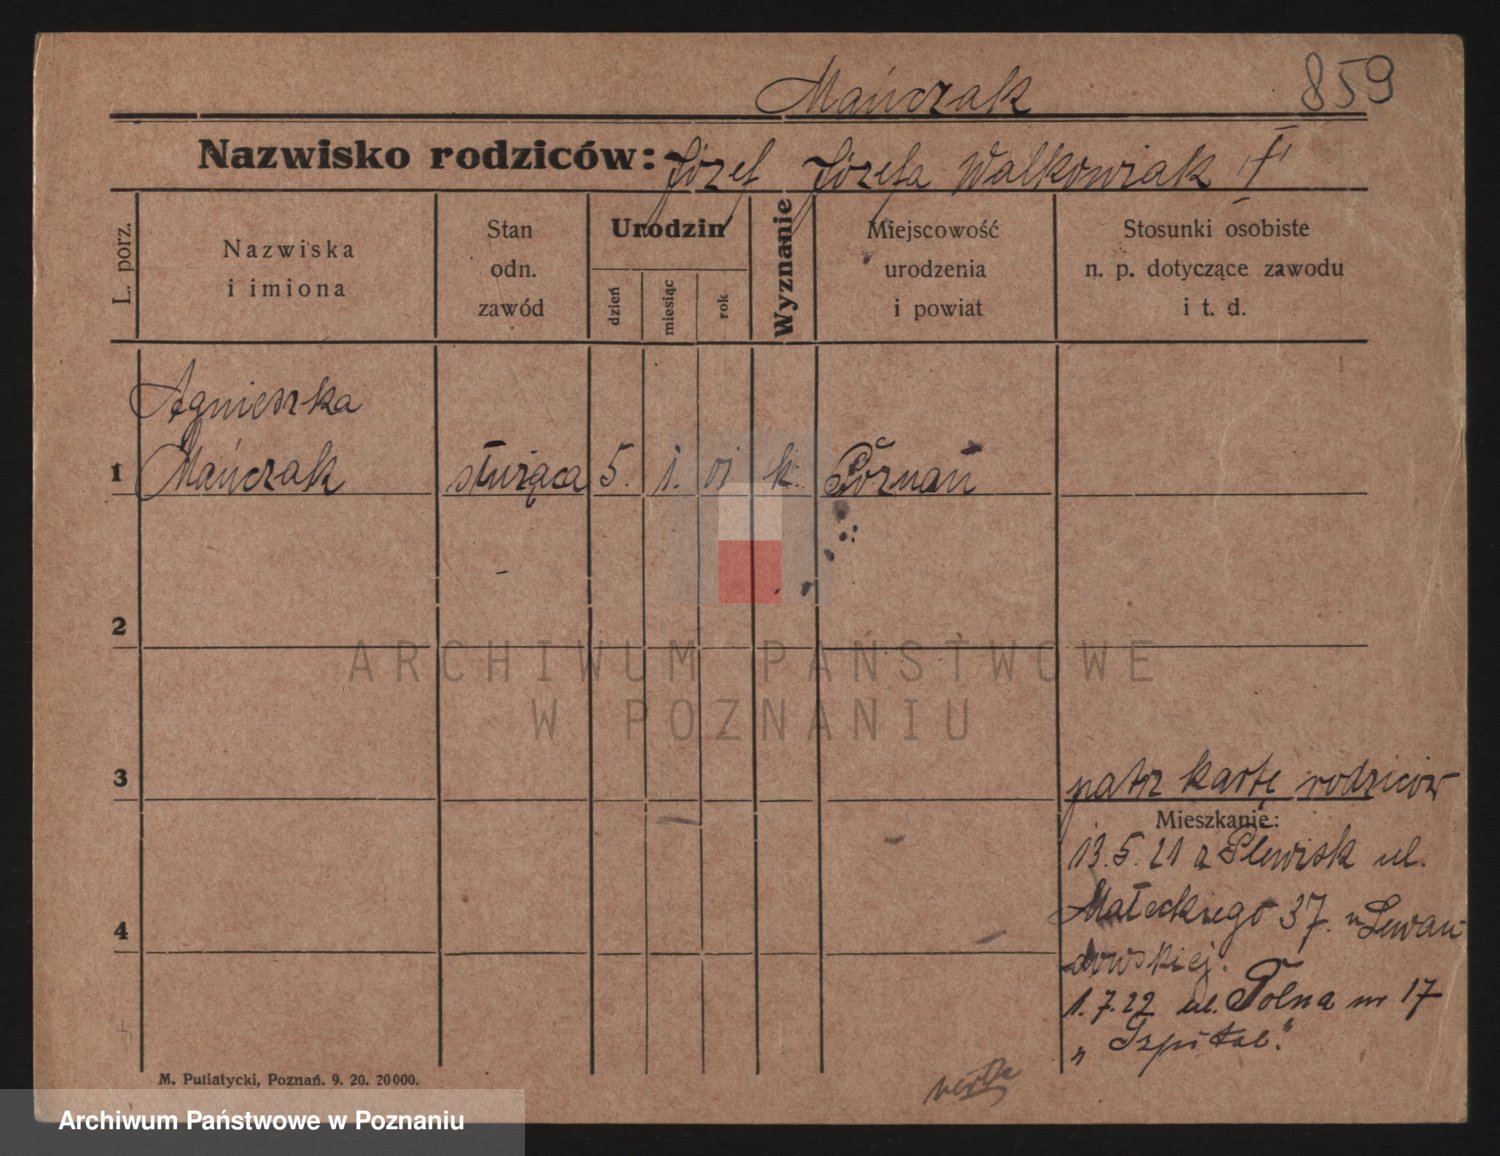 Mańczak 859
Nazwisko rodziców: Józef Józefa Walkowiak
L. porz.
Nazwiska
i imiona
Stan
odn.
zawód
Urodzin
dzień
miesiąc
rok
Wyznanie
Miejscowość
urodzenia
i powiat
Stosunki osobiste
n. p. dotyczące zawodu
i t. d.
Agnieszka
1 Mańczak służąca 5. 1. 01 k. Poznań
2
ARCHIWUM PAŃSTWOWE
W POZNANIU
3 patrz kartę rodziców
Mieszkanie:
13.5.21 z Plewisk ul.
Małeckiego 37. u Lewan
4
dowskiej.
1.7.22 ul. Polna nr 17
"Szpital".
M. Putiatycki, Poznań. 9. 20. 20000.
Archiwum Państwowe w Poznaniu